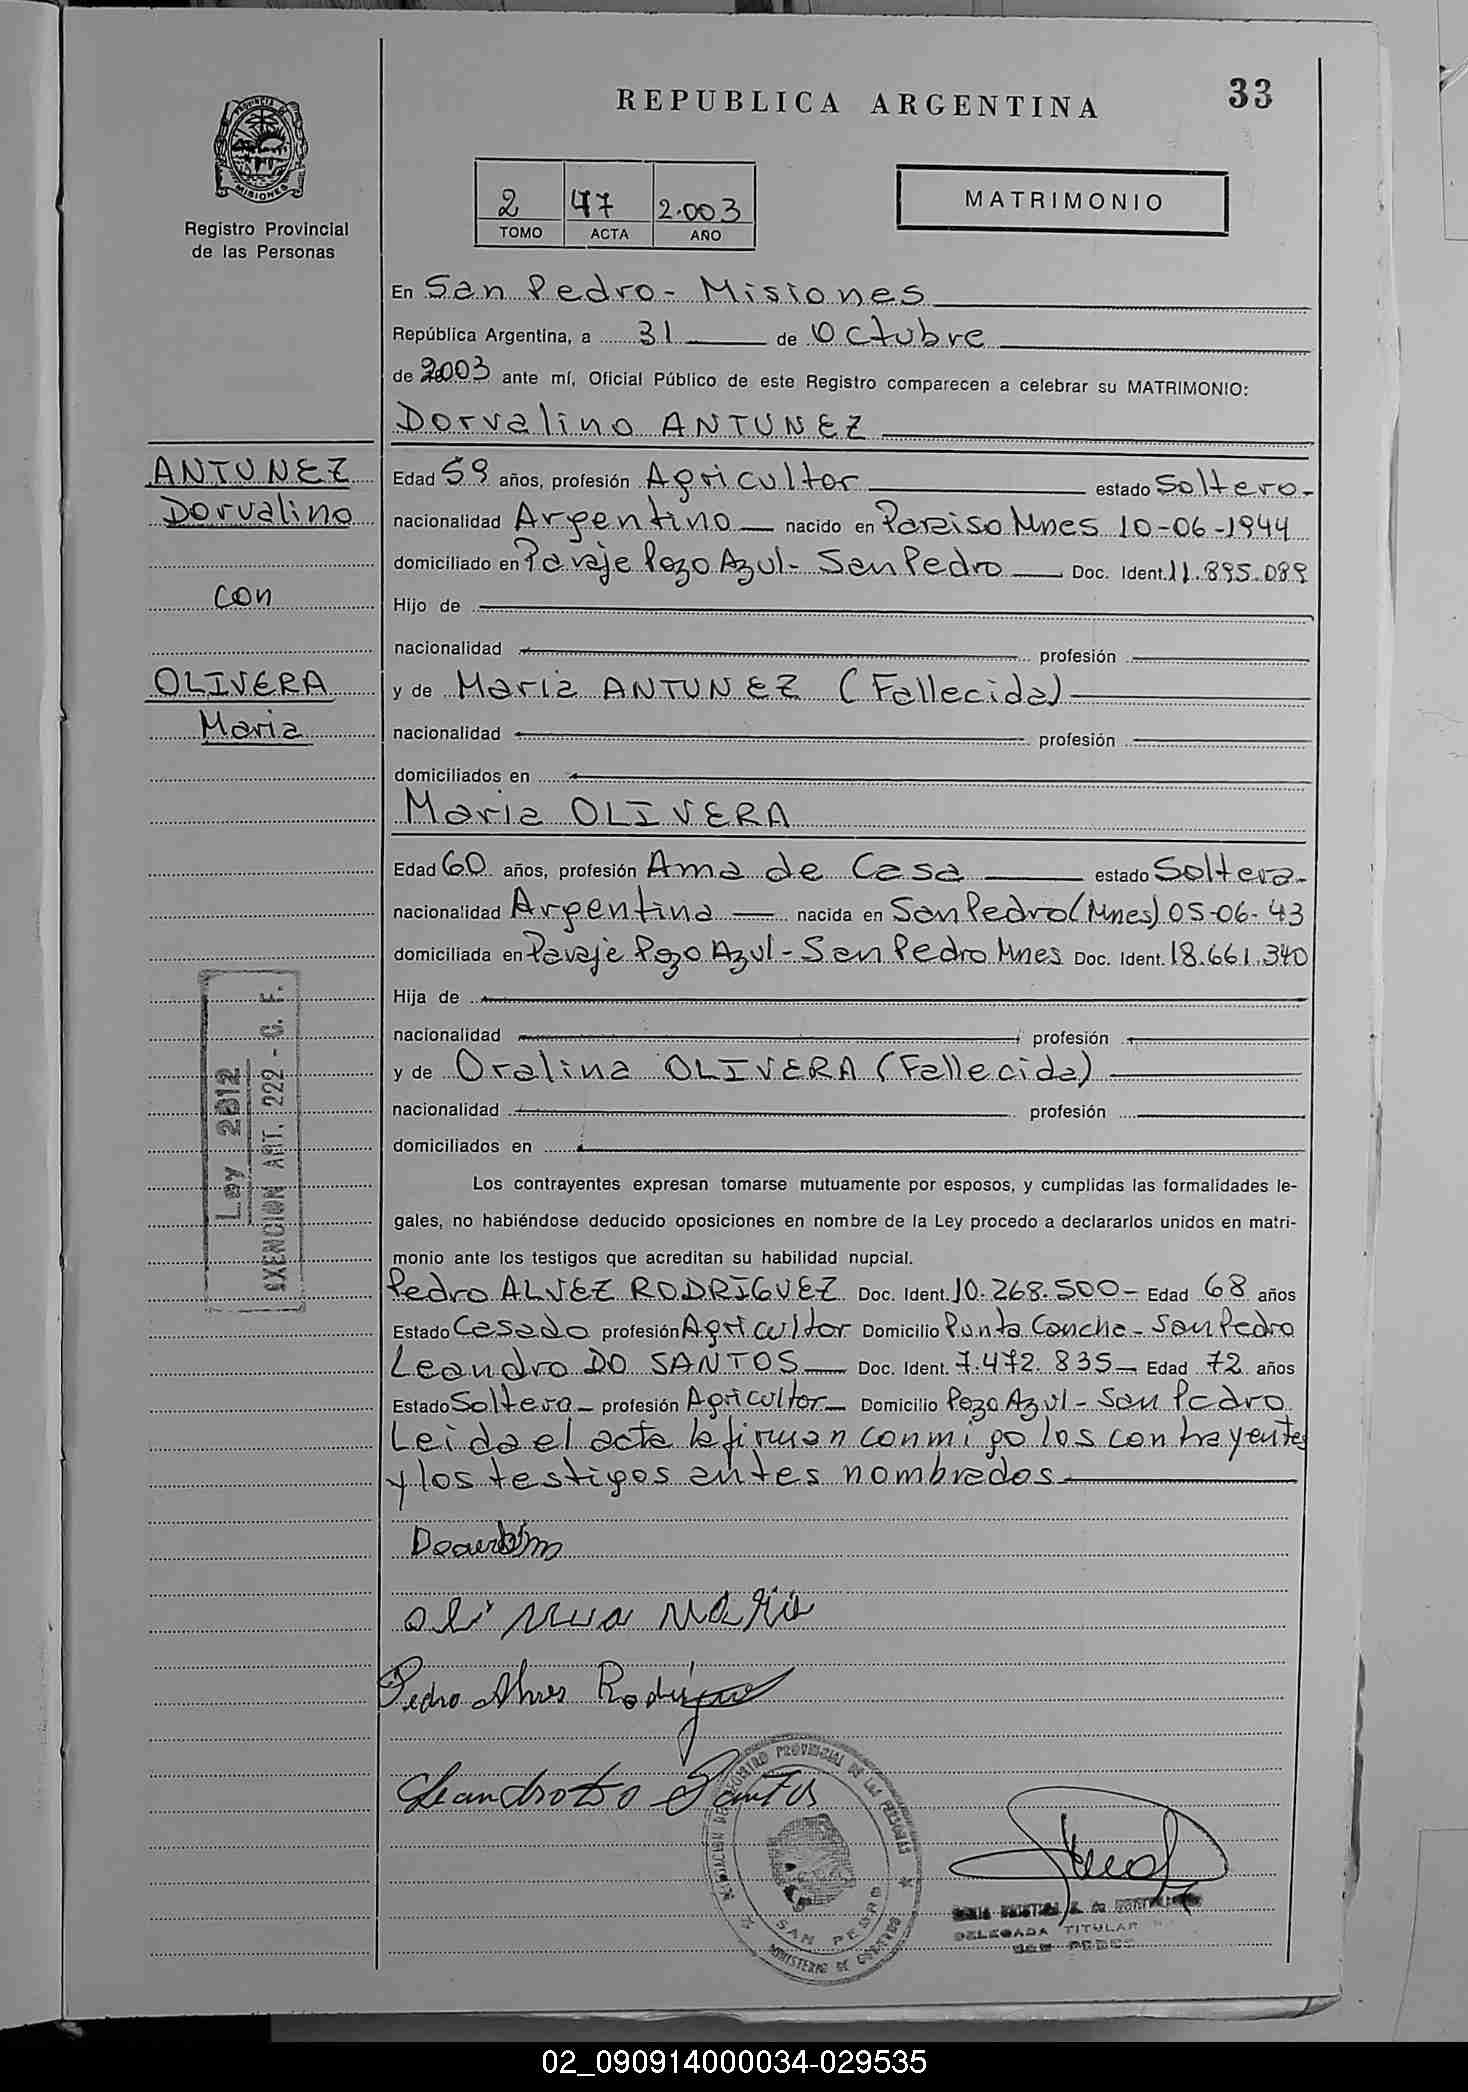 REPUBLICA ARGENTINA
33
PROVINCIA DE
MISIONES
Registro Provincial
de las Personas
2 47 2.003
TOMO ACTA AÑO
MATRIMONIO
En San Pedro - Misiones
República Argentina, a 31 de Octubre
de 2003 ante mí, Oficial Público de este Registro comparecen a celebrar su MATRIMONIO:
Dorvalino ANTUNEZ
ANTUNEZ
Dorvalino
con
OLIVERA
Maria
Edad 59 años, profesión Agricultor estado Soltero.-
nacionalidad Argentino nacido en Paraiso Mnes 10-06-1944
domiciliado en Paraje Pozo Azul - San Pedro Doc. Ident. 11.895.089
Hijo de
nacionalidad profesión
y de Maria ANTUNEZ (Fallecida)
nacionalidad profesión
domiciliados en
Maria OLIVERA
Edad 60 años, profesión Ama de Casa estado Soltera-
nacionalidad Argentina nacida en San Pedro (Mnes) 05-06-43
domiciliada en Paraje Pozo Azul - San Pedro Mnes Doc. Ident. 18.661.340
Hija de
nacionalidad profesión
y de Oralina OLIVERA (Fallecida)
nacionalidad profesión
domiciliados en
Ley 2812
EXENCION ART. 222 - C. F.
Los contrayentes expresan tomarse mutuamente por esposos, y cumplidas las formalidades le-
gales, no habiéndose deducido oposiciones en nombre de la Ley procedo a declararlos unidos en matri-
monio ante los testigos que acreditan su habilidad nupcial.
Pedro ALVEZ RODRIGUEZ Doc. Ident. 10.268.500- Edad 68 años
Estado Casado profesión Agricultor Domicilio Punta Concha - San Pedro
Leandro DO SANTOS Doc. Ident. 7.472.835 Edad 72 años
Estado Soltero - profesión Agricultor Domicilio Pozo Azul - San Pedro
Leida el acta la firman conmigo los contrayentes
y los testigos antes nombrados
Pedro Alves Rodriguez
Leandro do Santos
REGISTRO PROVINCIAL DE LAS PERSONAS
SAN PEDRO
MINISTERIO DE GOBIERNO
DELEGADA TITULAR
SAN PEDRO
02_090914000034-029535